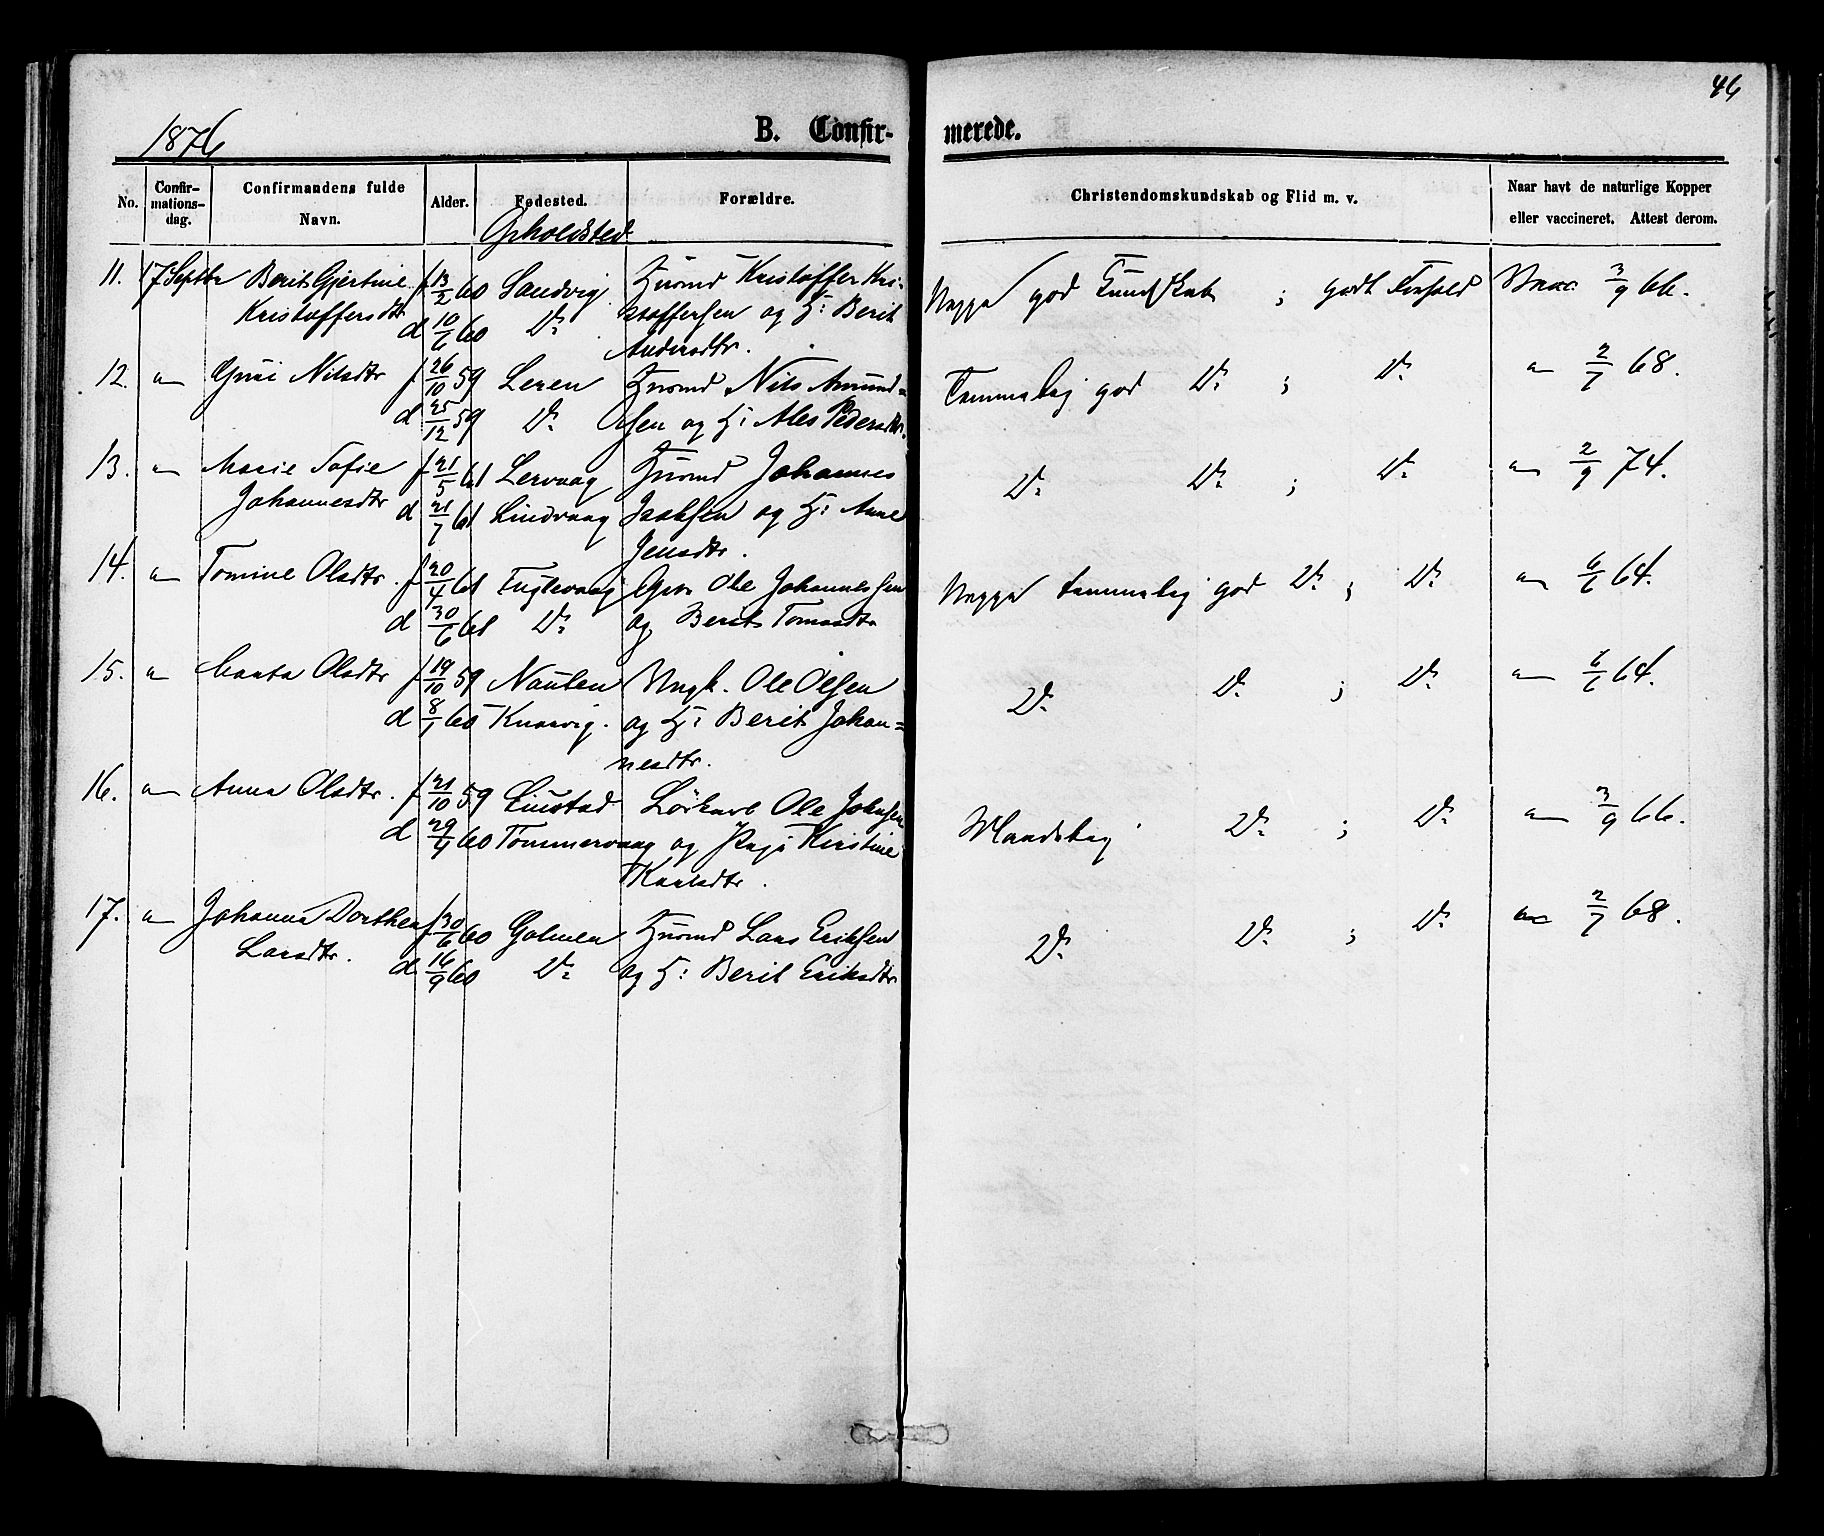 46
1876
B. Confirmerede.
No. Confirmationsdag. Confirmandens fulde Navn. Alder. Fødested. Forældre. Christendomskundskab og Flid m. v. Naar havt de naturlige Kopper eller vaccineret. Attest derom.
Opholdsted
11. 17 Septbr Berit Gjertine f 13/2 60 Sandvig Husmd Kristoffer Kri- Neppe god Kundskab ; godt Forhold Vacc 3/9 66.
Kristoffersdtr d 10/6 60 Do stoffersen og H: Berit
Andersdtr.
12. " Guri Nilsdtr f 26/10 59 Leren Husmd Nils Amund= Temmelig god Do ; Do " 2/7 68.
d 25/12 59 Do sen og H: Ales Pedersdtr.
13. " Marie Sofie f 21/5 61 Lervaag Husmd Johannes Do Do ; Do " 2/9 74.
Johannesdtr d 21/7 61 Lindvaag Isaksen og H: Anne
Jensdtr.
14. " Tomine Olsdtr. f 20/4 61 Fuglevaag Grd Ole Johannessen Neppe temmelig god Do ; Do " 6/6 64.
d 30/6 61 Do og Berit Tomasdtr
15. " Marta Olsdtr f 19/10 59 Nausten Ungk. Ole Olsen Do Do ; Do " 6/6 64.
d 8/1 60 Knarvig. og H: Berit Johan=
nesdtr.
16. " Anna Olsdtr. f 21/10 59 Ole Johnsen Maadelig Do ; Do " 3/9 66.
d 29/4 60 Tommervaag og Pige Kirstine
Karlsdtr.
17. " Johanna Dorthea f 30/6 60 Golmen Husmd Lars Eriksen Do Do ; Do " 2/7 68.
Larsdtr. d 16/9 60 Do og H: Berit Eriksdtr